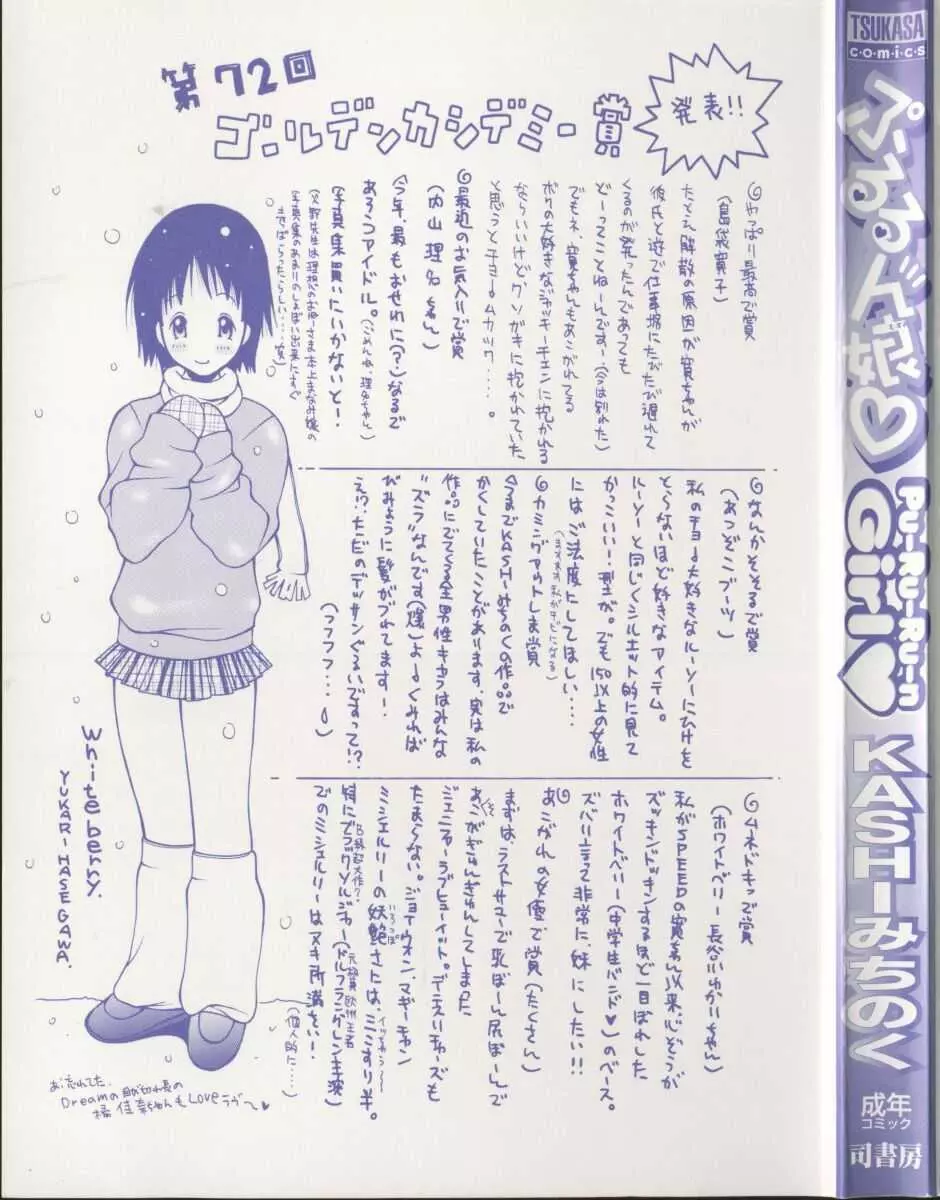 第72回
ゴールデンカシデミー賞
発表!!
◎やっぱり最高で賞
(島袋寛子)
たとえ解散の原因が寛ちゃんが
彼氏と遊んで仕事場にたびたび遅れて
くるのが発ったんであっても
どーってことねーんです…(今は別れた)
でもネ、寛ちゃんもあこがれてる
ボクの大好きなジャッキーチェンに抱かれる
ならいいけど、クソガキに抱かれていた
と思うとチョームカツク……。
◎最近のお気入りで賞
(内山理名ちゃん)
今年、最もおせわに(?)なるで
あろうアイドル。(ごめんね、理名ちゃん)
写真集買いたいかないと!
◎なんかそそるで賞
(あつぞこブーツ)
私のチョー大好きなルーソーにひけを
とらないほど好きなアイテム。
ルーソーと同じくシルエット的に見て
かっこいい!型が。でも150以上の女性
にはご法度にしてほしい….
◎カミングアウトしま賞
今までKASHIみちのくの作品で
かくしていたことがあります。実は私の
作品にでてくる全男性キャラはみんな
"ズラ"なんです(爆)よーくみれば
びみょうに髪がづれてます!
え!?ただのデッサンぐるいですって!?
(フフフフ…)
◎ムネドキッで賞
(ホワイトベリー長谷川ゆかりちゃん)
私がSPEEDの寛ちゃん以来、心ぞうが
ズッキンドッキンするほど一目ぼれした
ホワイトベリー(中学生バンド♥)のベース。
ズバリ言って非常に、妹にしたい!!
◎あこがれの女優で賞(たくさん)
まずは、ラストサマーで乳ぼーん尻ぼーんで
あごがぎゅんぎゅんしてしまった
ジェニファーラブヒューイット。デニスリチャーズも
たまらない。ジョイウォン、マギーチャン
ミシェルリーの妖艶さたは、ミミずり半。
いろっぽ
特にブラックソルジャー(ドルフラングレン主演)
でのミシェルリーはヌキ所満さい!
(個人的に….)
Whiteberry.
YUKARI・HASEGAWA.
お、忘れてた、
橘 佳奈ちゃんもLoveラヴ〜♥
TSUKASA
comics
ぷるるん娘♡
PU-RU-RU-n
Girl♡
KASHIみちのく
成年
コミック
司書房